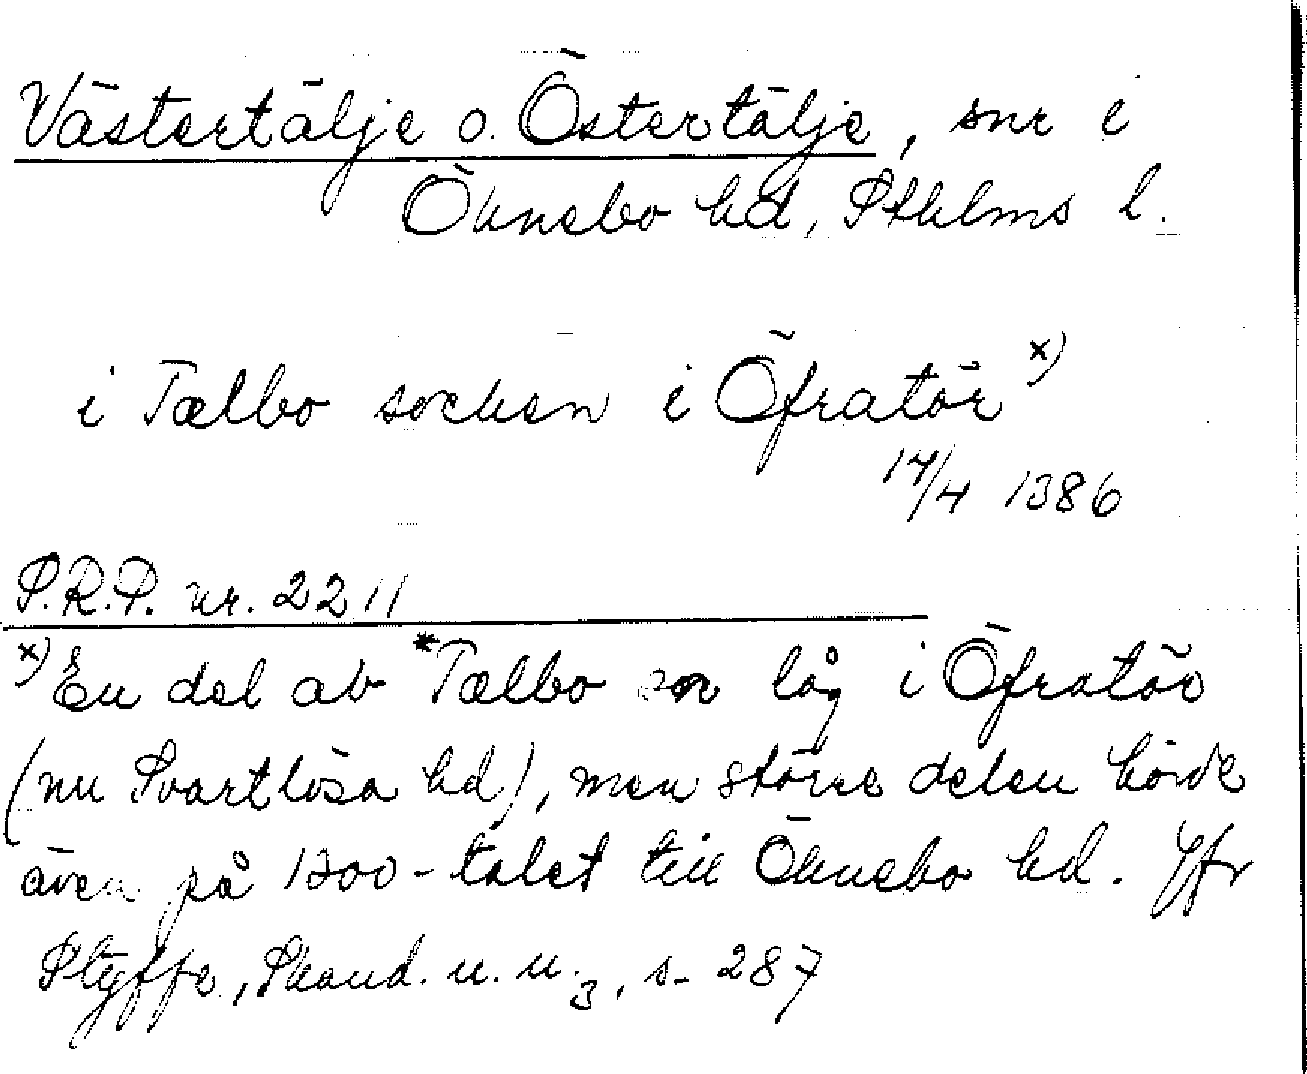 Västertälje o. Östertälje, snr i
Öknebo hd, Sthlms l.
i Tælbo socken i Öfratör x)
14/4 1386
S.R.P. nr. 2211
x) En del av *Tælbo sn låg i Öfratör
(nu Svartlösa hd), men större delen hörde
även på 1300-talet till Öknebo hd. Jfr
Styffe, Skand. u. u. 3, s. 287